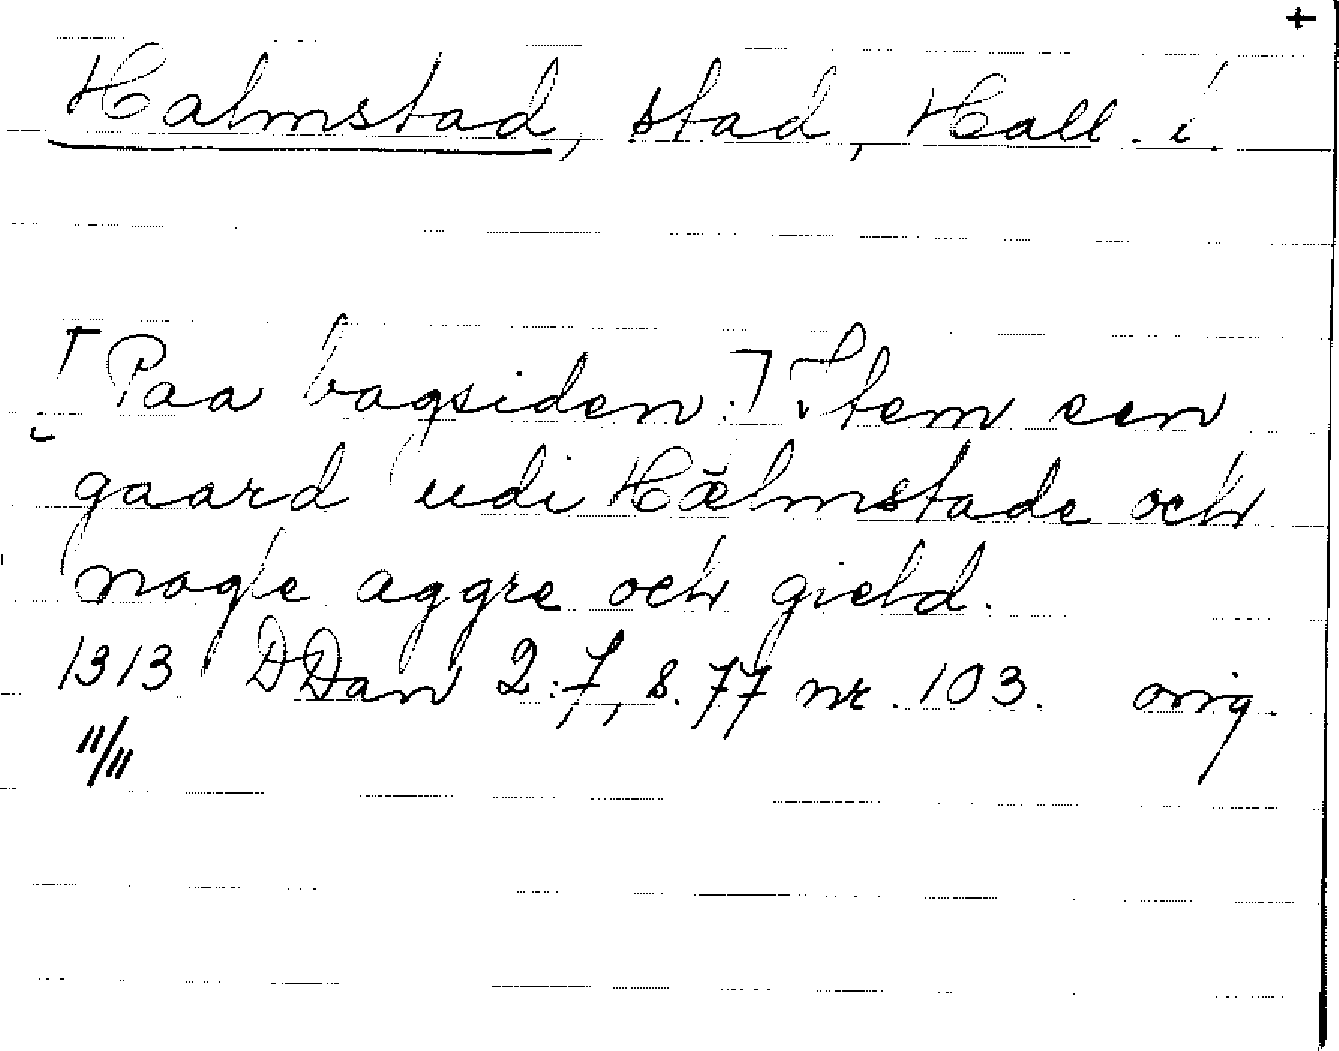 +
Halmstad, stad, Hall. i.
[Paa bagsiden:] Item een
gaard udi Hælmstade och
nogle aggre och gield.
1313 DDan 2:7, s. 77 nr. 103. orig.
11/11